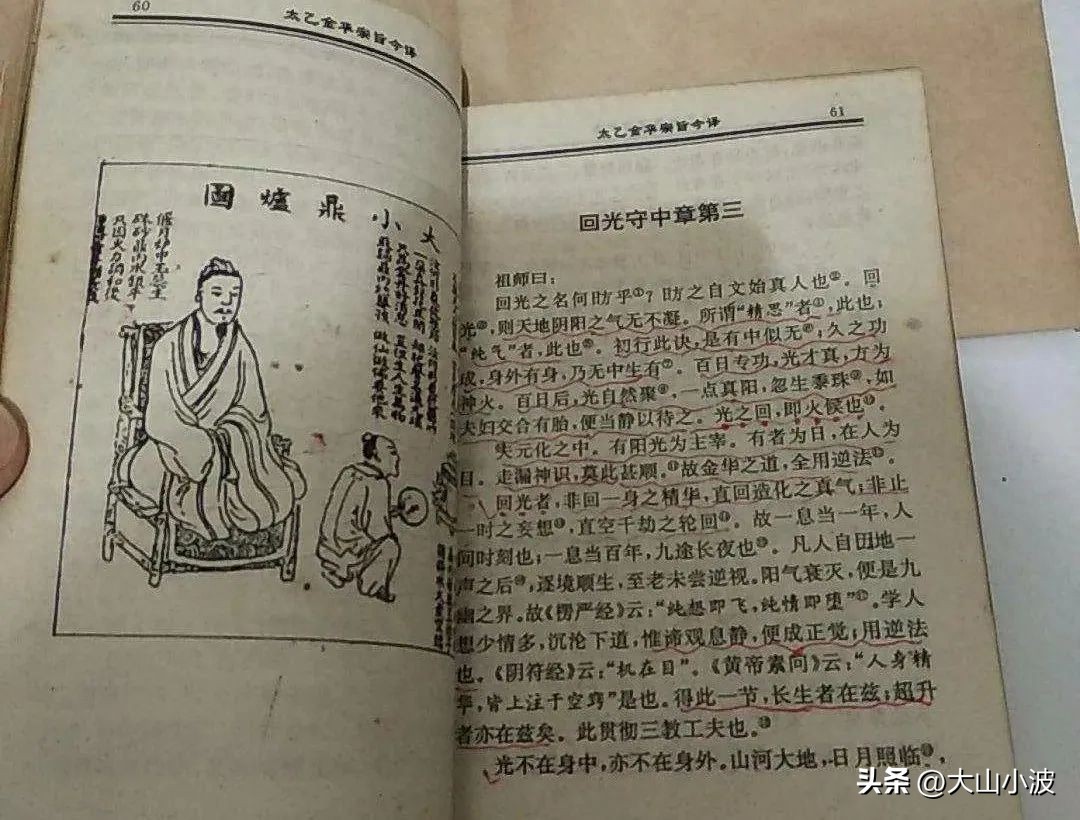 60
太乙金华宗旨今译
大小鼎爐圖
偃月爐中玉蕊生
硃砂鼎內水銀平
只因火力調和後
61
太乙金华宗旨今译
回光守中章第三
祖师曰：
回光之名何昉乎①？昉之自文始真人也②。回
光③，则天地阴阳之气无不凝。所谓“精思”者④，此也；
“纯气”者，此也⑤。初行此诀，是有中似无⑥；久之功
成，身外有身，乃无中生有⑦。百日专功，光才真，方为
神火。百日后，光自然聚⑧，一点真阳，忽生黍珠⑨，如
夫妇交合有胎，便当静以待之。光之回，即火候也⑩。
夫元化之中。有阳光为主宰。有者为日，在人为
目。走漏神识，莫此甚顺。⑪故金华之道，全用逆法⑫。
回光者，非回一身之精华，直回造化之真气；非止
一时之妄想⑬，直空千劫之轮回⑭。故一息当一年，人
间时刻也；一息当百年，九途长夜也⑮。凡人自囝地一
声之后⑯，逐境顺生，至老未尝逆视。阳气衰灭，便是九
幽之界。故《楞严经》云：“纯想即飞，纯情即堕”⑰。学人
想少情多，沉沦下道，惟谛观息静，便成正觉；用逆法
也。《阴符经》云：“机在目”。《黄帝素问》云：“人身精
华，皆上注于空窍”是也。得此一节，长生者在兹；超升
者亦在兹矣。此贯彻三教工夫也。⑱
光不在身中，亦不在身外。山河大地，日月照临⑲，
头条 @大山小波